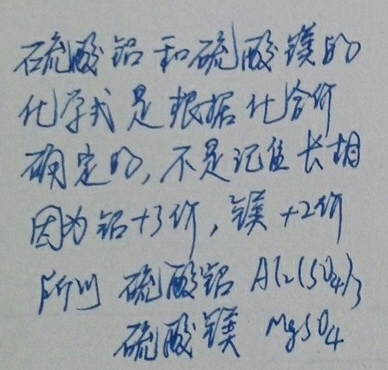 硫酸铝和硫酸镁的
化学式是根据化合价
确定的,不是记住长相
因为铝+3价,镁+2价
所以 硫酸铝 Al2(SO4)3
硫酸镁 MgSO4